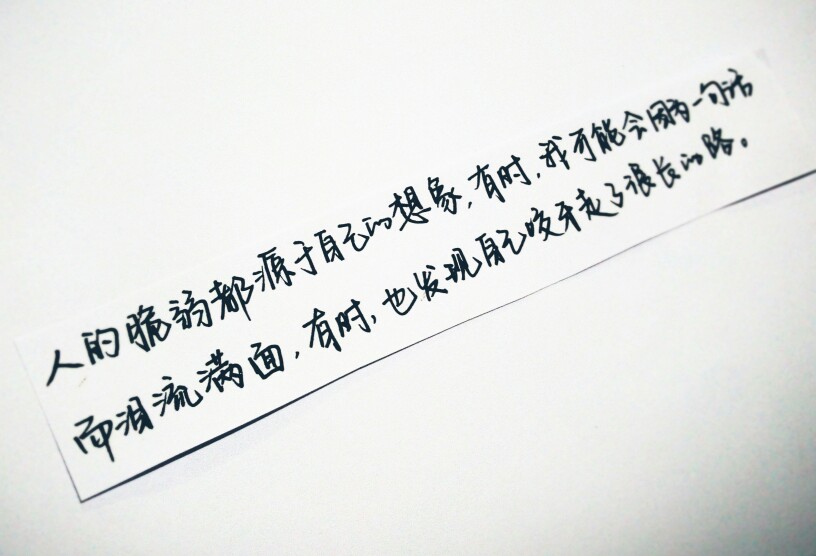 人的脆弱都源于自己的想象,有时,我可能会因为一句话
而泪流满面,有时,也发现自己咬牙走了很长的路。